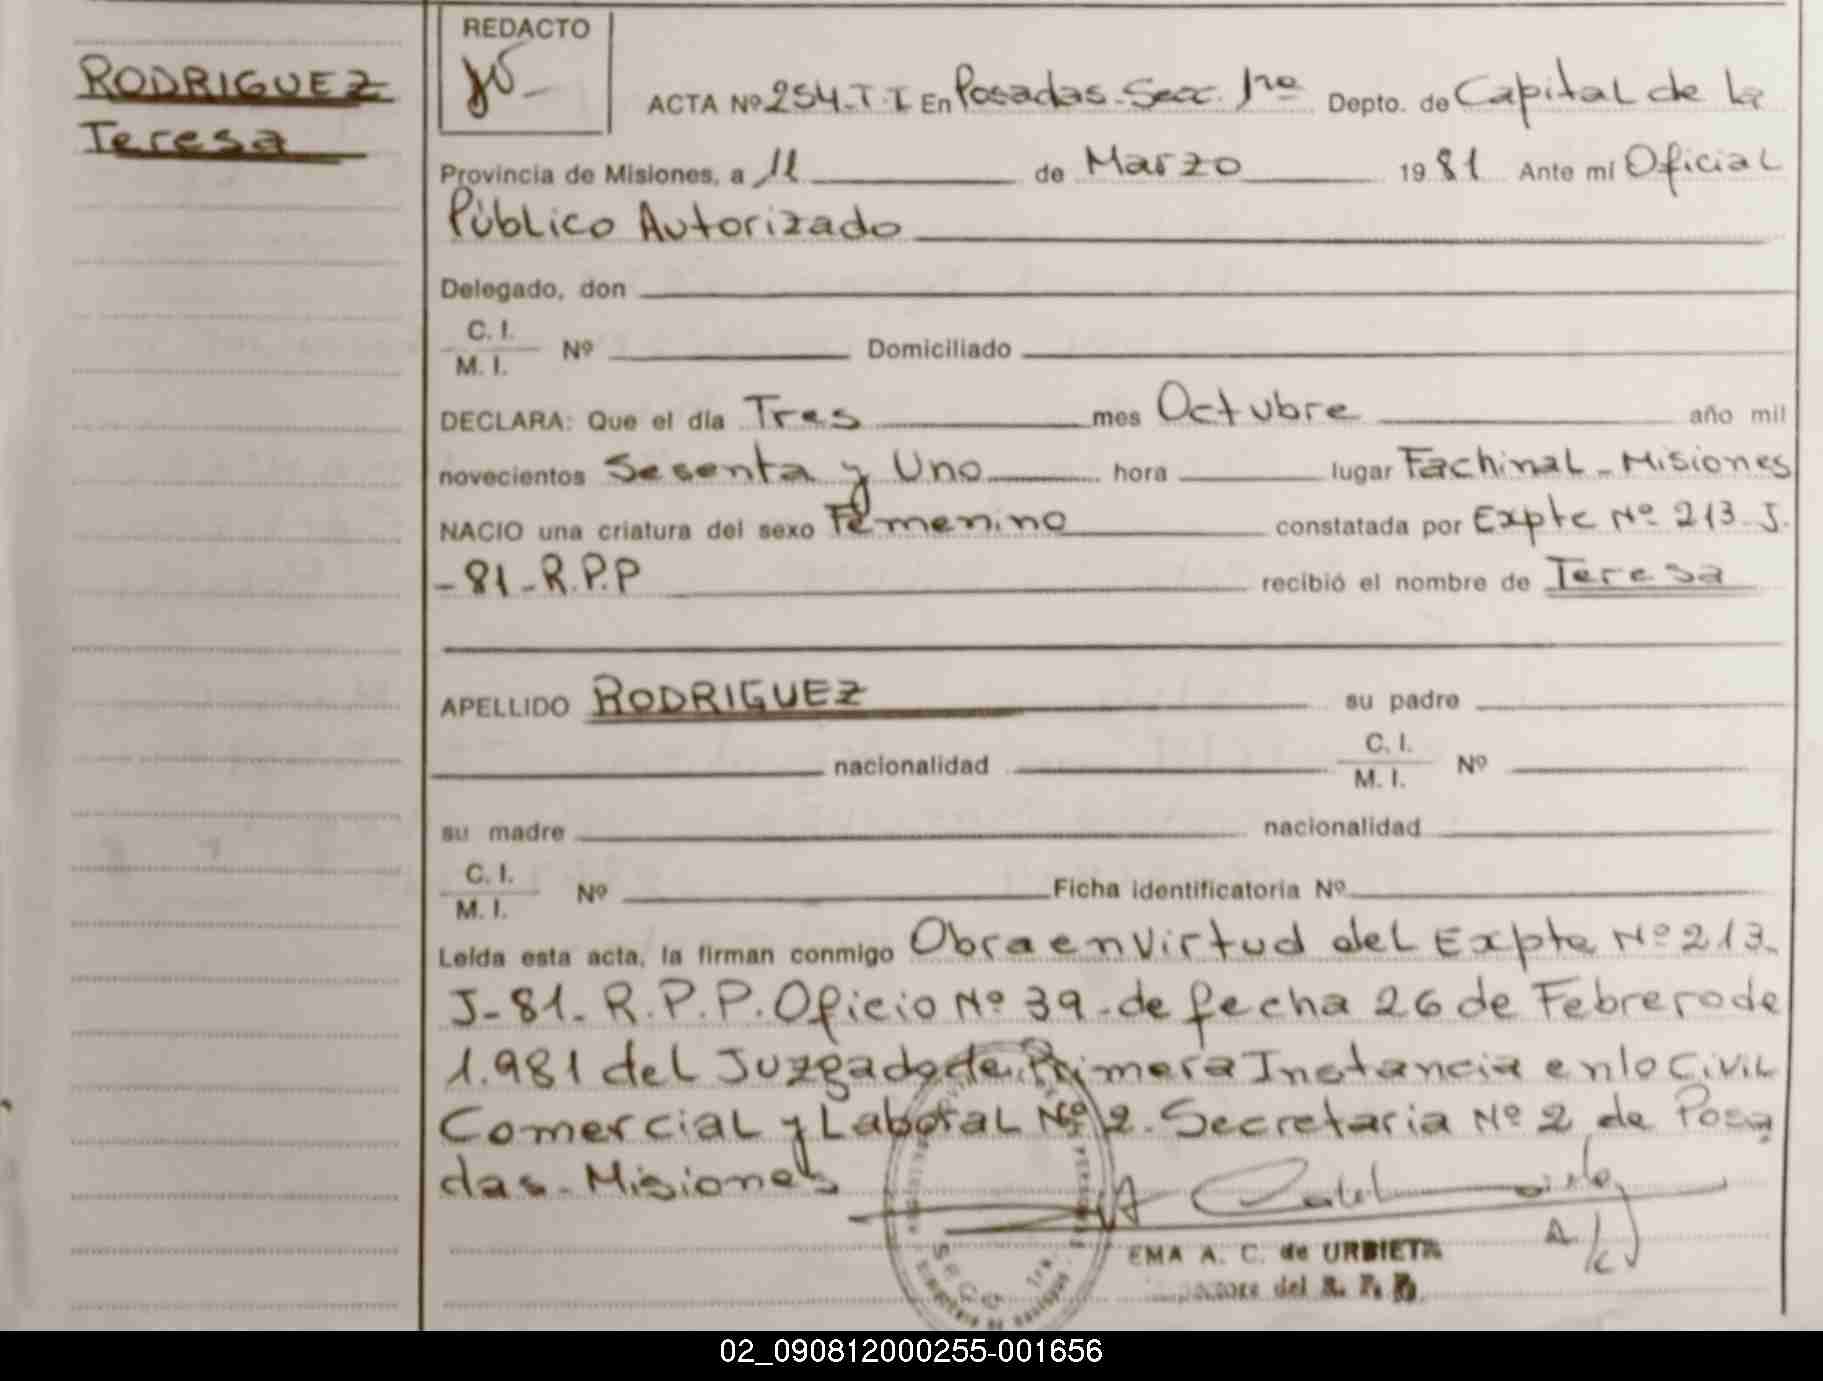 RODRIGUEZ
Teresa
REDACTO
ACTA Nº 254-T-I En Posadas-Secc. 1ra Depto. de Capital de la
Provincia de Misiones, a 11 de Marzo 1981 Ante mí Oficial
Público Autorizado
Delegado, don
C. I.
M. I. Nº Domiciliado
DECLARA: Que el día Tres mes Octubre año mil
novecientos Sesenta y Uno hora lugar Fachinal-Misiones
NACIO una criatura del sexo Femenino constatada por Expte Nº 213-J.
-81-R.P.P recibió el nombre de Teresa
APELLIDO RODRIGUEZ su padre
nacionalidad C. I.
M. I. Nº
su madre nacionalidad
C. I.
M. I. Nº Ficha identificatoria Nº
Leída esta acta, la firman conmigo Obra en Virtud del Expte Nº 213-
J-81-R.P.P. Oficio Nº 39-de fecha 26 de Febrero de
1.981 del Juzgado de Primera Instancia en lo Civil
Comercial y Laboral Nº 2. Secretaria Nº 2 de Posa
das-Misiones
EMA A. C. de URBIETA
del R. P. P.
02_090812000255-001656